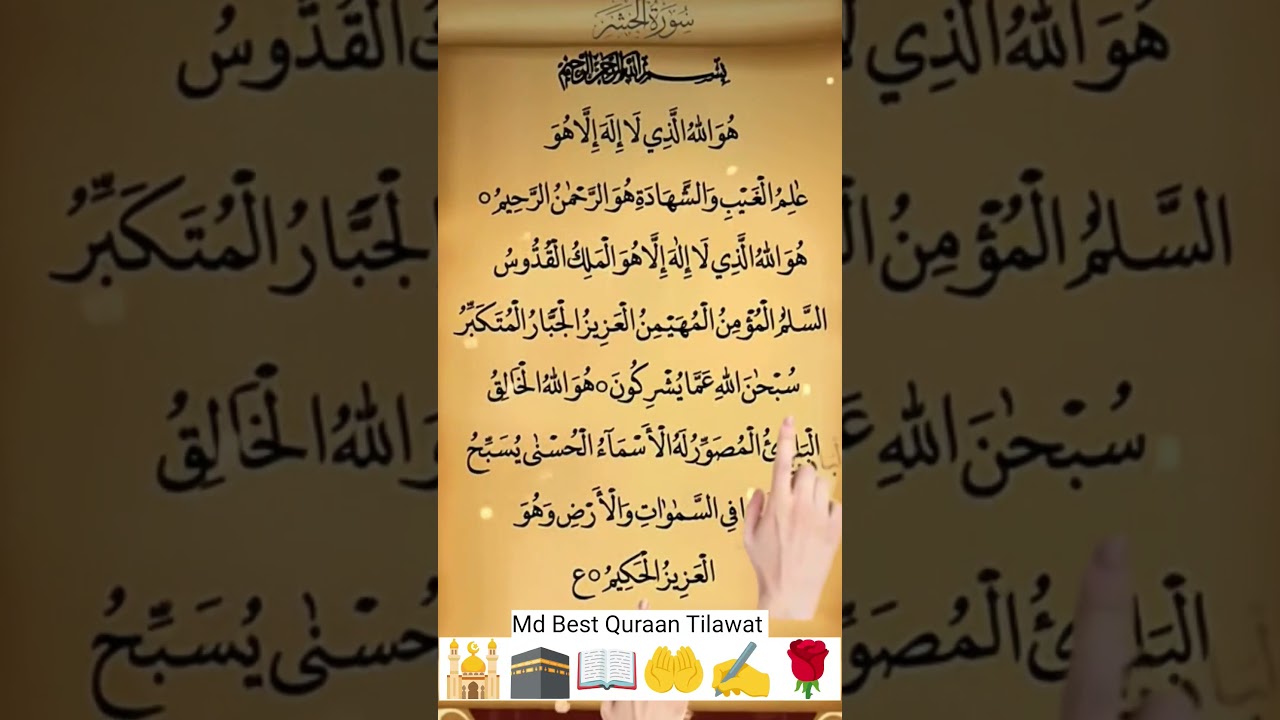 سُورَةُ الْحَشْر
بِسْمِ اللهِ الرَّحْمٰنِ الرَّحِيْمِ
هُوَ اللهُ الَّذِي لَا إِلَهَ إِلَّا هُوَ
عٰلِمُ الْغَيْبِ وَالشَّهَادَةِ هُوَ الرَّحْمٰنُ الرَّحِيْمُ ○
هُوَ اللهُ الَّذِي لَا إِلٰهَ إِلَّا هُوَ الْمَلِكُ الْقُدُّوسُ
السَّلٰمُ الْمُؤْمِنُ الْمُهَيْمِنُ الْعَزِيزُ الْجَبَّارُ الْمُتَكَبِّرُ
سُبْحٰنَ اللهِ عَمَّا يُشْرِكُونَ ○ هُوَ اللهُ الْخَالِقُ
الْمُصَوِّرُ لَهُ الْأَسْمَآءُ الْحُسْنٰى يُسَبِّحُ
فِي السَّمٰوٰتِ وَالْأَرْضِ وَهُوَ
الْعَزِيزُ الْحَكِيْمُ ○ ع
Md Best Quraan Tilawat